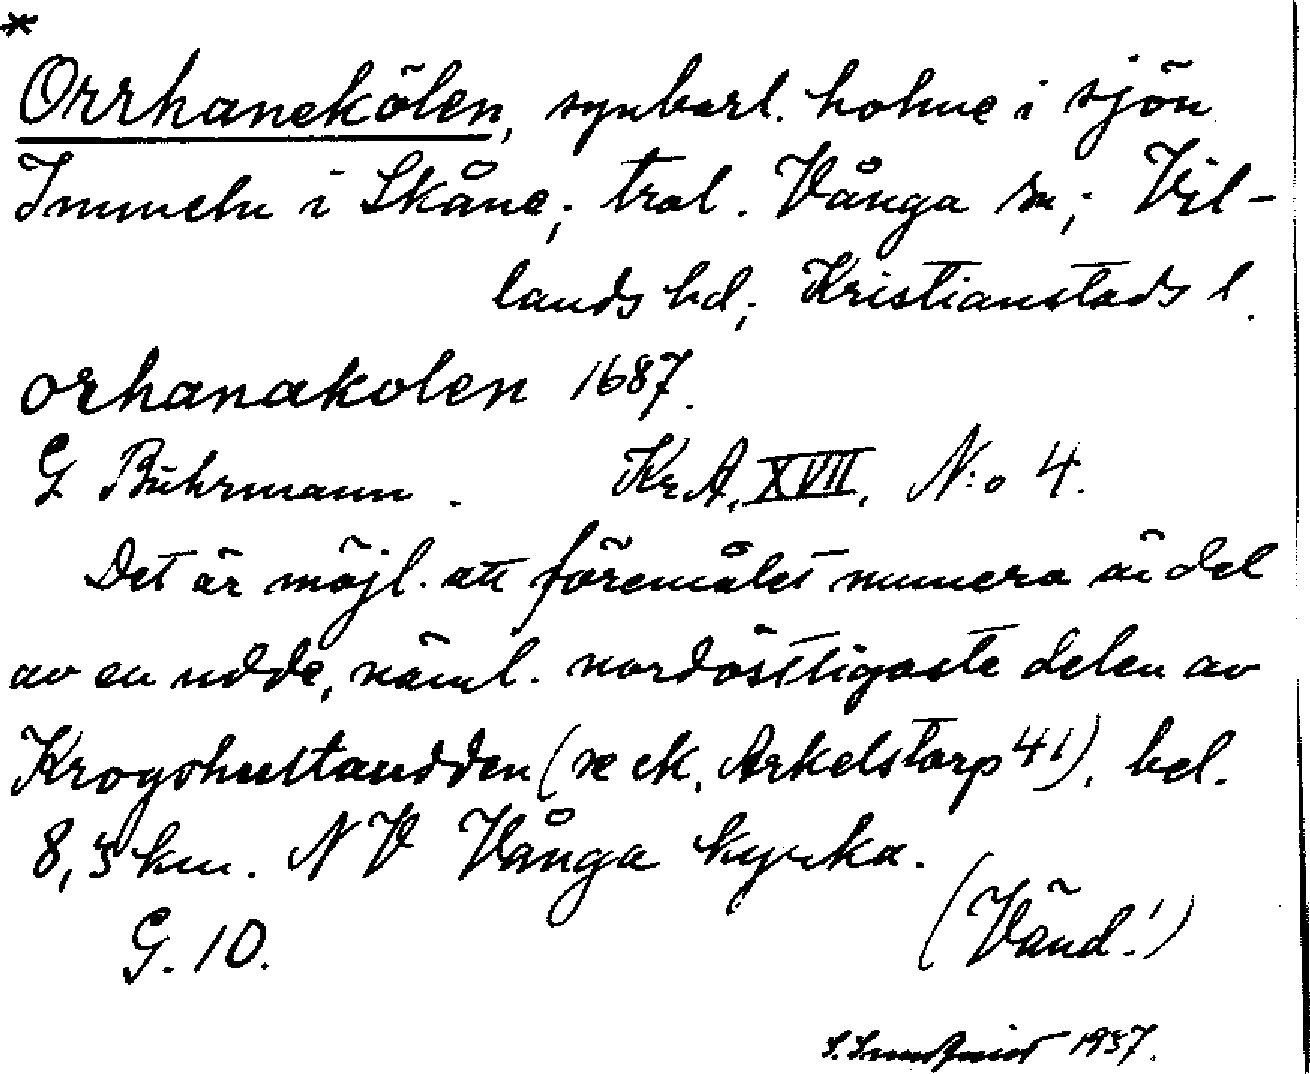 *
Orrhanekölen, synbarl. holme i sjön
Immeln i Skåne; trol. Vånga sn; Vil-
lands hd; Kristianstads l.
orhanakolen 1687.
G Buhrmann. Kr.A. XVII, N:o 4.
Det är möjl. att föremålet numera är del
av en udde, näml. nordöstligaste delen av
Krogshultaudden (se ek. Arkelstorp 41), bel.
8,5 km. NV Vånga kyrka.
G. 10. (Vänd!)
1937.